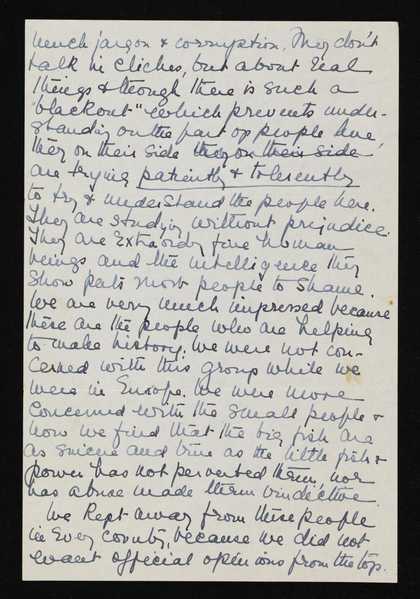 hench jargon & corruption. They don't
talk in cliches, but about real
things & though there is such a
"blackout" which prevents under-
standing on the part of people here,
they on their side they on their side
are trying patiently & tolerently
to try & understand the people here.
They are studying without prejudice.
They are Extraordry fine human
beings and the intelligence they
show puts most people to shame.
We are very much impressed because
these are the people who are helping
to make history. We were not con-
cerned with this group while we
were in Europe. We were more
concerned with the small people &
now we find that the big fish are
as sincere and true as the little fish &
power has not perverted them, nor
has abuse made them vindictive.
We kept away from these people
in Every country, because we did not
want official opinions from the top.